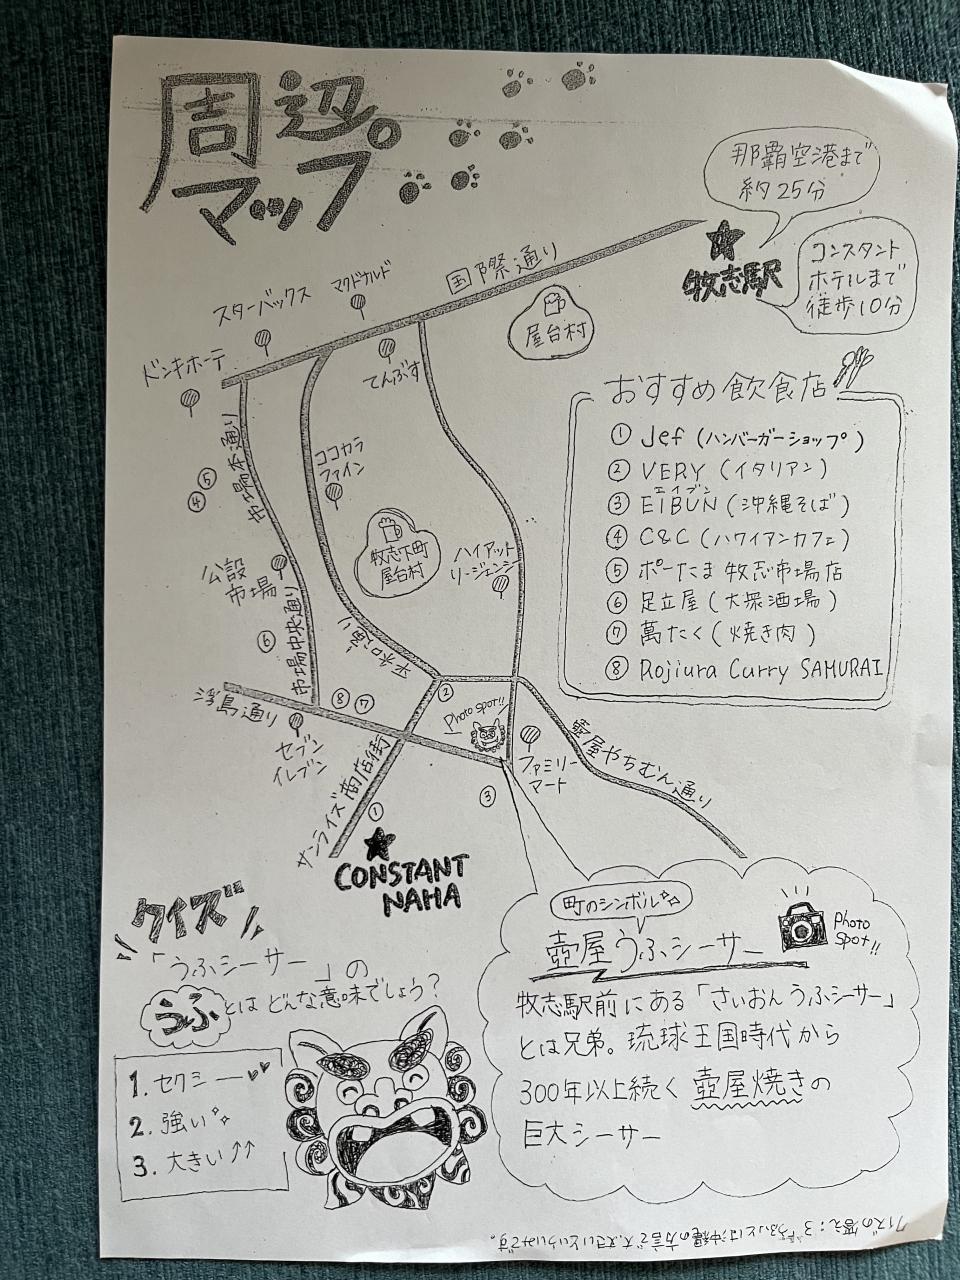 周辺
マップ。
那覇空港まで
約25分
牧志駅
コンスタント
ホテルまで
徒歩10分
国際通り
マクドナルド
スターバックス
ドンキホーテ
てんぶす
屋台村
おすすめ飲食店
① Jef (ハンバーガーショップ)
② VERY (イタリアン)
エイブン
③ EIBUN (沖縄そば)
④ C&C (ハワイアンカフェ)
⑤ ポーたま 牧志市場店
⑥ 足立屋 (大衆酒場)
⑦ 萬たく (焼き肉)
⑧ Rojiura Curry SAMURAI
市場本通り
⑤
④
ココカラ
ファイン
牧志下町
屋台村
ハイアット
リージェンシー
公設
市場
⑥
市場中央通り
平和通り
浮島通り
⑧ ⑦
②
Photo spot!!
セブン
イレブン
ファミリー
マート
壺屋やちむん通り
サンライズ商店街
③
①
CONSTANT
NAHA
クイズ
「うふシーサー」の
うふとはどんな意味でしょう?
1. セクシー
2. 強い
3. 大きい↑↑
町のシンボル
壺屋うふシーサー
Photo
Spot!!
牧志駅前にある「さいおんうふシーサー」
とは兄弟。琉球王国時代から
300年以上続く 壺屋焼きの
巨大シーサー
クイズの答え:3 "うふ"とは沖縄の方言で大きいといういみです。